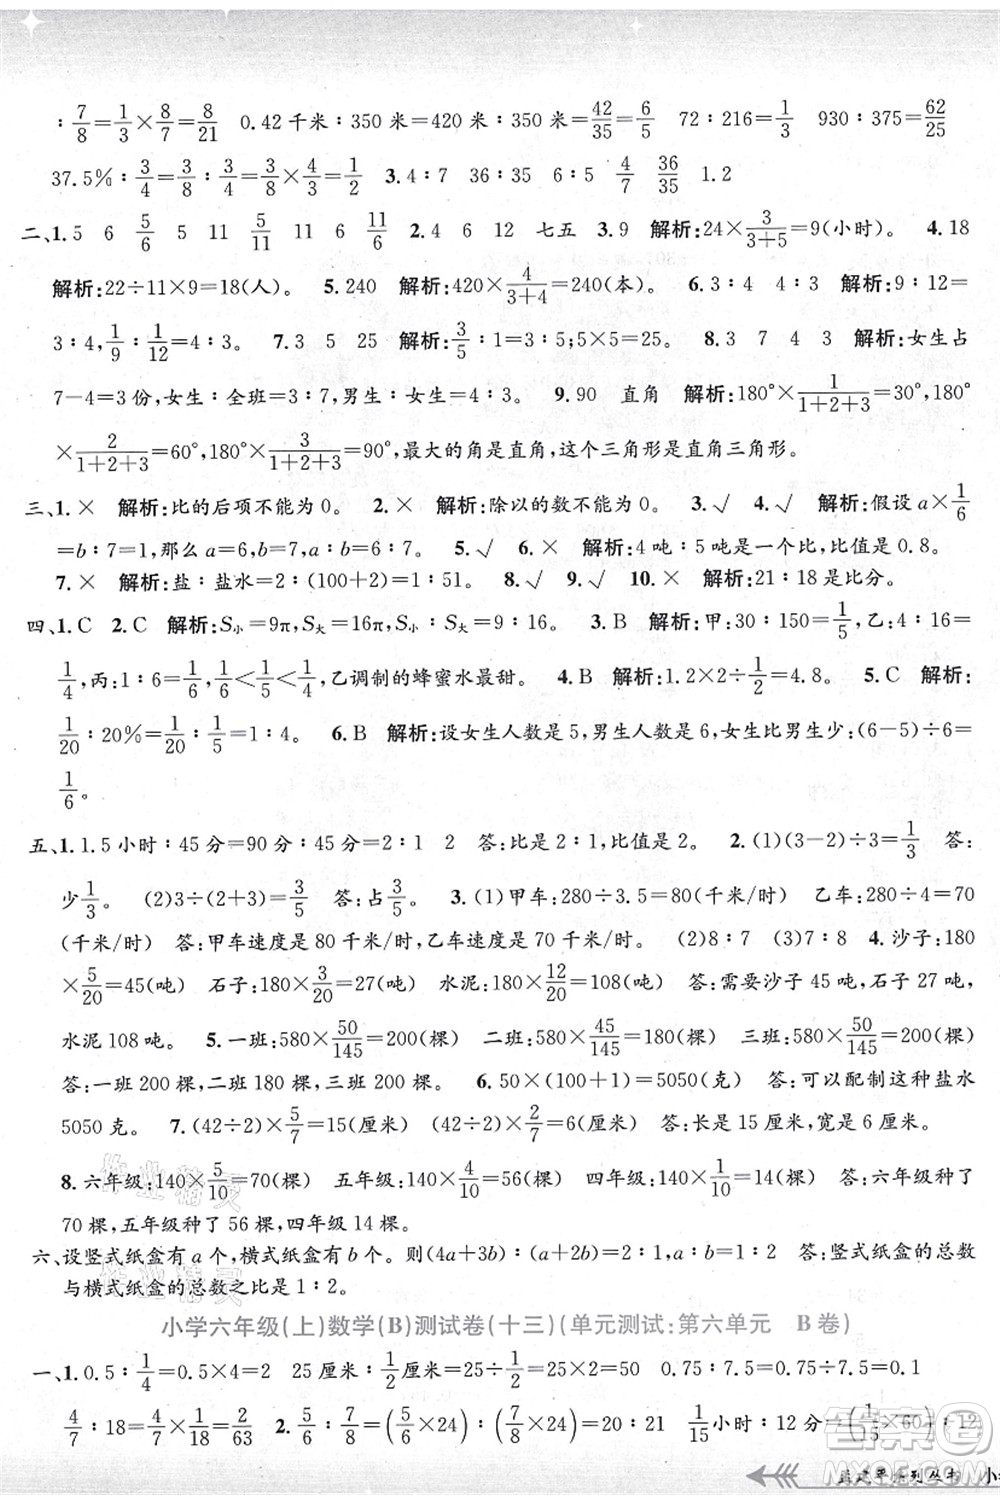 ：7/8=1/3×8/7=8/21 0.42千米：350米=420米：350米=42/35=6/5 72：216=1/3 930：375=62/25
37.5%：3/4=3/8：3/4=3/8×4/3=1/2 3.4：7 36：35 6：5 4/7 36/35 1.2
二、1.5 6 5/6 5 11 5/11 11 6 11/6 2.4 6 12 七五 3.9 解析:24×3/(3+5)=9(小时)。 4.18
解析:22÷11×9=18(人)。 5.240 解析:420×4/(3+4)=240(本)。 6.3：4 4：3 解析:9：12=
3：4,1/9：1/12=4：3。 7.3 5 25 解析:3/5：1=3：5。 8.3 7 4 3 解析:女生占
7-4=3份,女生：全班=3：7,男生：女生=4：3。 9.90 直角 解析:180°×1/(1+2+3)=30°,180°
×2/(1+2+3)=60°,180°×3/(1+2+3)=90°,最大的角是直角,这个三角形是直角三角形。
三、1.× 解析:比的后项不能为0。 2.× 解析:除以的数不能为0。 3.√ 4.√ 解析:假设a×1/6
=b：7=1,那么a=6,b=7,a：b=6：7。 5.√ 6.× 解析:4吨：5吨是一个比,比值是0.8。
7.× 解析:盐：盐水=2：(100+2)=1：51。 8.√ 9.√ 10.× 解析:21：18是比分。
四、1.C 2.C 解析:S小=9π,S大=16π,S小：S大=9：16。 3.B 解析:甲:30：150=1/5,乙:4：16=
1/4,丙:1：6=1/6,1/6<1/5<1/4,乙调制的蜂蜜水最甜。 4.B 解析:1.2×2÷1/2=4.8。 5.C 解析:
1/20：20%=1/20：1/5=1：4。 6.B 解析:设女生人数是5,男生人数是6,女生比男生少:(6-5)÷6=
1/6。
五、1.1.5小时：45分=90分：45分=2：1 2 答:比是2：1,比值是2。 2.(1)(3-2)÷3=1/3 答:
少1/3。 (2)3÷(2+3)=3/5 答:占3/5。 3.(1)甲车:280÷3.5=80(千米/时) 乙车:280÷4=70
(千米/时) 答:甲车速度是80千米/时,乙车速度是70千米/时。 (2)8：7 (3)7：8 4.沙子:180
×5/20=45(吨) 石子:180×3/20=27(吨) 水泥:180×12/20=108(吨) 答:需要沙子45吨,石子27吨,
水泥108吨。 5.一班:580×50/145=200(棵) 二班:580×45/145=180(棵) 三班:580×50/145=200(棵)
答:一班200棵,二班180棵,三班200棵。 6.50×(100+1)=5050(克) 答:可以配制这种盐水
5050克。 7.(42÷2)×5/7=15(厘米) (42÷2)×2/7=6(厘米) 答:长是15厘米,宽是6厘米。
8.六年级:140×5/10=70(棵) 五年级:140×4/10=56(棵) 四年级:140×1/10=14(棵) 答:六年级种了
70棵,五年级种了56棵,四年级14棵。
六、设竖式纸盒有a个,横式纸盒有b个。则(4a+3b)：(a+2b)=2：1 a：b=1：2 答:竖式纸盒的总数
与横式纸盒的总数之比是1：2。
小学六年级(上)数学(B)测试卷(十三)(单元测试:第六单元 B卷)
一、1.0.5：1/4=1/2：1/4=2 25厘米：1/2厘米=25÷1/2=25×2=50 0.75：7.5=0.75÷7.5=0.1
4/7：18=4/7×1/18=2/63 2.5/6：7/8=(5/6×24)：(7/8×24)=20：21 1/15小时：12分=(1/15×60)：12
孟建平系列丛书 小